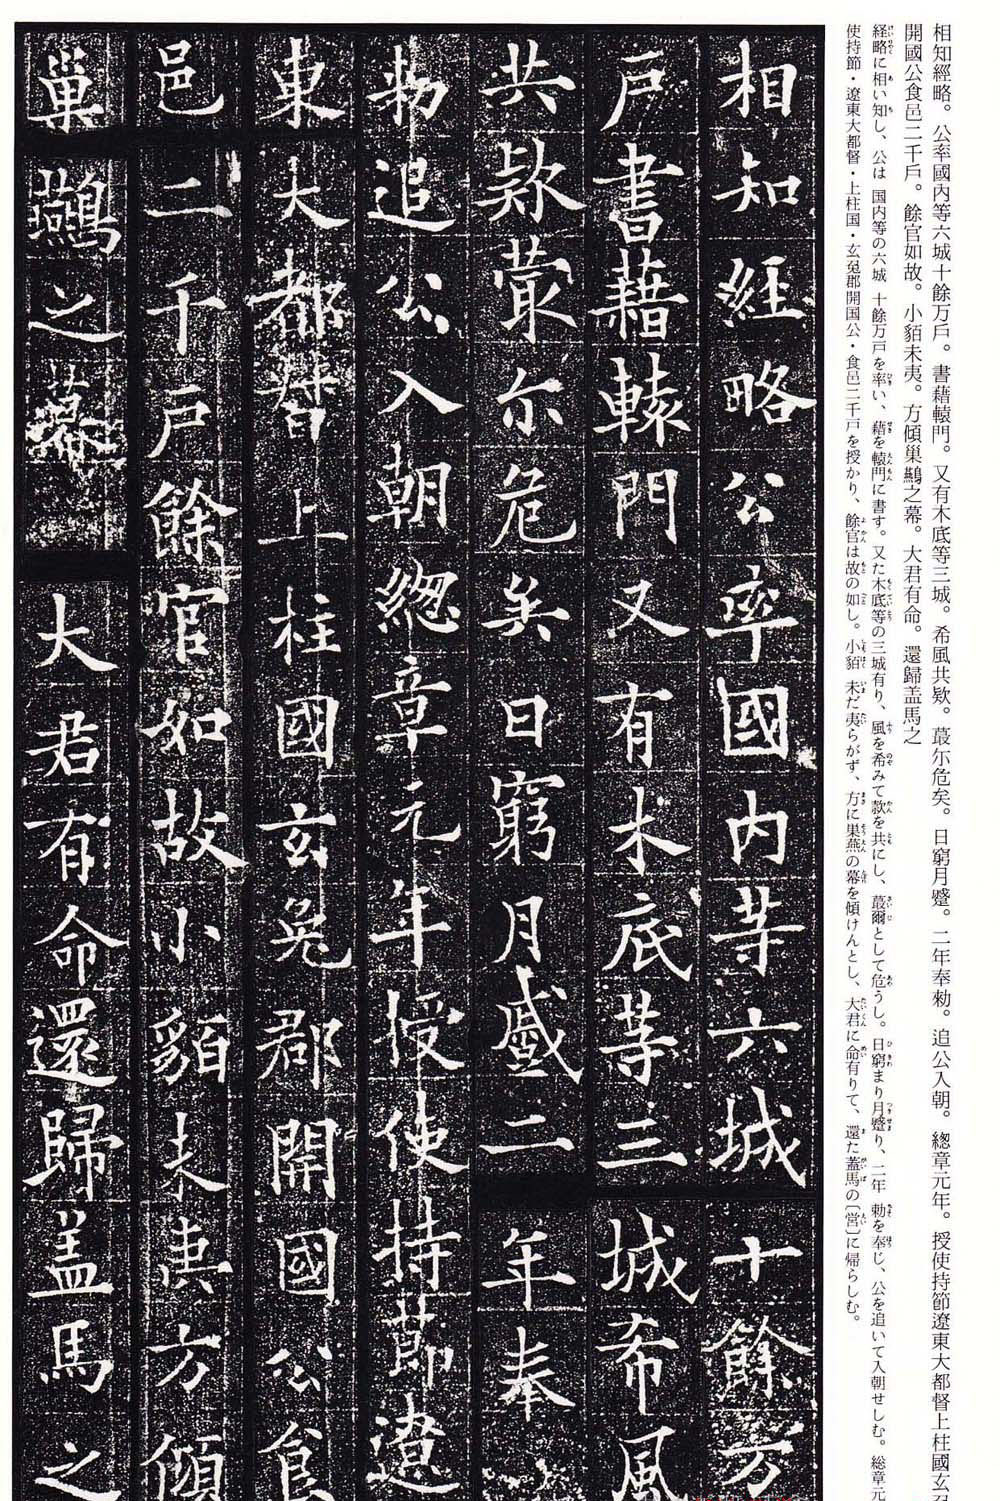 相知經略。公率國内等六城十餘万戶。書藉轅門。又有木底等三城。希風共欵。蕞尓危矣。日窮月蹙。二年奉勑。追公入朝。總章元年。授使持節遼東大都督上柱國玄
開國公食邑二千戶。餘官如故。小貊未夷。方傾巢鷰之幕。大君有命。還歸盖馬之
経略に相い知し、公は 国内等の六城 十餘万戸を率い、藉を轅門に書す。又た木底等の三城有り、風を希みて款を共にし、蕞爾として危うし。日窮まり月蹙り、二年 勅を奉じ、公を追いて入朝せしむ。総章元
使持節・遼東大都督・上柱国・玄兔郡開国公・食邑二千戸を授かり、餘官は故の如し。小貊 未だ夷らがず、方に巣燕の幕を傾けんとし、大君に命有りて、還た蓋馬の〔営〕に帰らしむ。
相知經略公率國内等六城十餘万
戶書藉轅門又有木底等三城希風
共欵蕞尓危矣日窮月蹙二年奉
勑追公入朝總章元年授使持節遼
東大都督上柱國玄兔郡開國公食
邑二千戶餘官如故小貊未夷方傾
巢鷰之幕大君有命還歸盖馬之